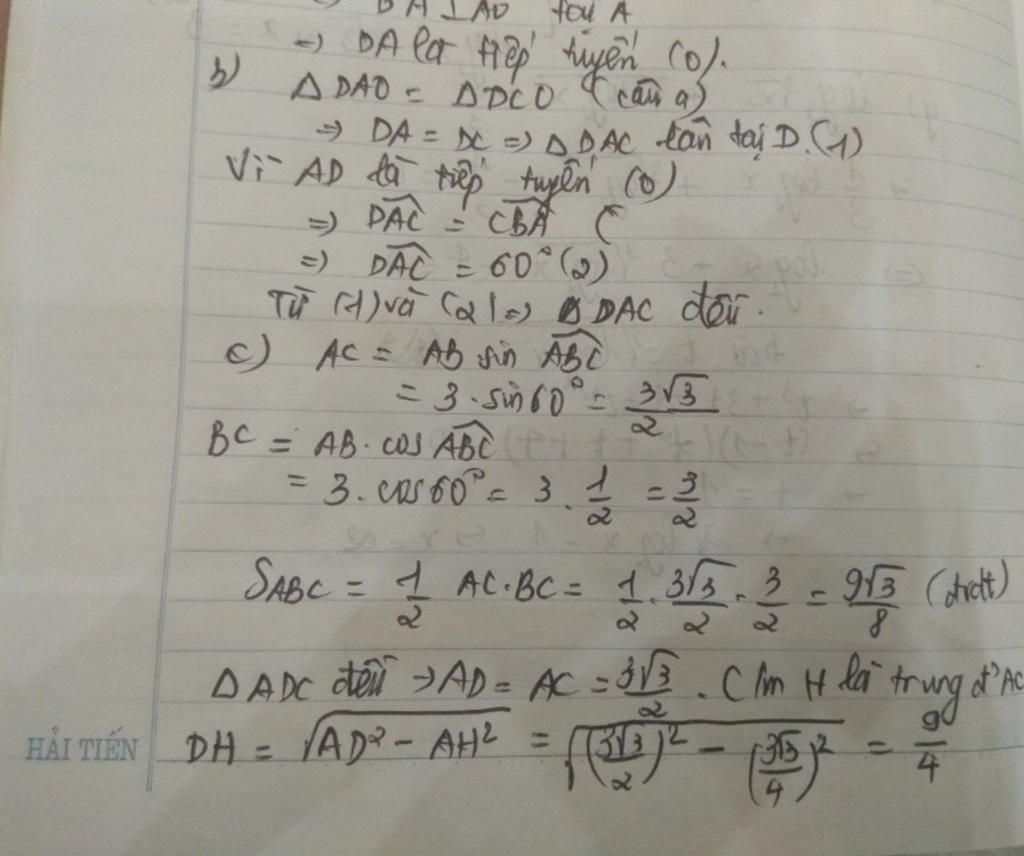 DA ⊥ AO tại A
=> DA là tiếp tuyến (O).
b) Δ DAO = Δ DCO (câu a)
=> DA = DC => Δ DAC cân tại D. (1)
Vì AD là tiếp tuyến (O)
=> \widehat{DAC} = \widehat{CBA} (
=> \widehat{DAC} = 60° (2)
Từ (1) và (2) => Δ DAC đều.
c) AC = AB sin \widehat{ABC}
= 3 . sin 60° = \frac{3√3}{2}
BC = AB . cos \widehat{ABC}
= 3 . cos 60° = 3 . \frac{1}{2} = \frac{3}{2}
S_{ABC} = \frac{1}{2} AC . BC = \frac{1}{2} . \frac{3√3}{2} . \frac{3}{2} = \frac{9√3}{8} (đvdt)
Δ ADC đều → AD = AC = \frac{3√3}{2} . C/m H là trung đ' AC
HẢI TIẾN
DH = \sqrt{AD² - AH²} = \sqrt{(\frac{3√3}{2})² - (\frac{3√3}{4})²} = \frac{9}{4}